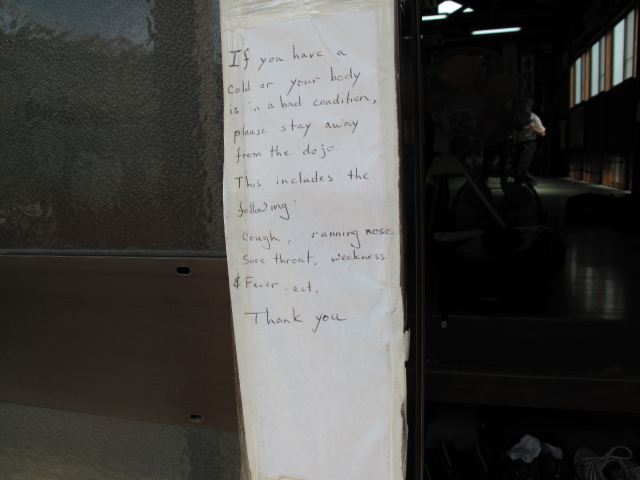 If you have a
cold or your body
is in a bad condition,
please stay away
from the dojo.
This includes the
following:
Cough, running nose
Sore throat, weakness
& Fever .ect.
Thank you